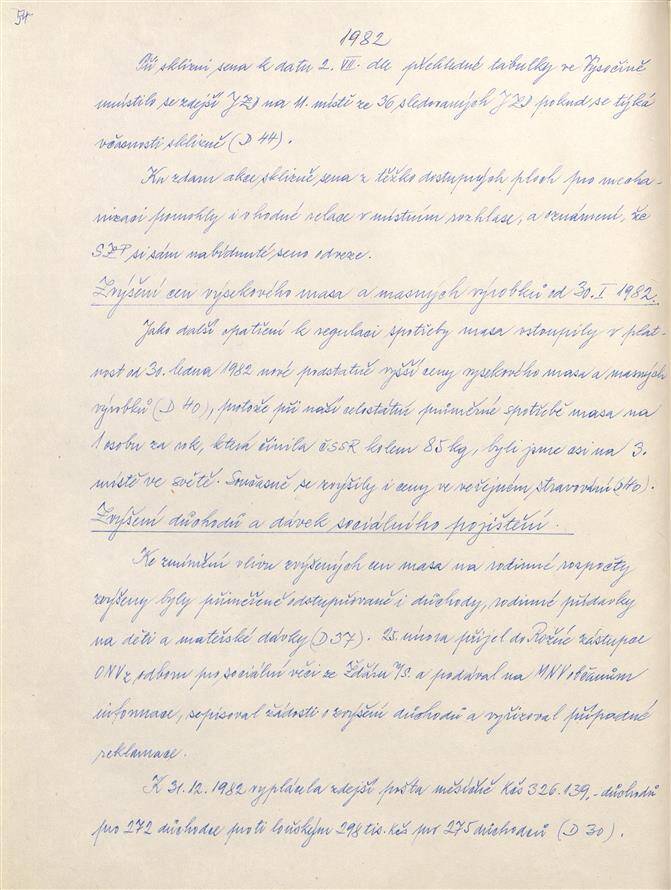 54
1982
Při sklizni sena k datu 2. VII. dle přehledné tabulky ve Vysočině
umístilo se zdejší JZD na 11. místě ze 36 sledovaných JZD pokud se týká
včasnosti sklizně (D 44).
Ku zdaru akce, sklizně sena z těžko dostupných ploch pro mecha-
nizaci pomohly i vhodné relace v místním rozhlase, a oznámení, že
SZP si sám nabídnuté seno odveze.
Zvýšení cen výsekového masa a masných výrobků od 30. I. 1982.
Jako další opatření k regulaci spotřeby masa vstoupily v plat-
nost od 30. ledna 1982 nové podstatně vyšší ceny výsekového masa a masných
výrobků (D 40), protože při naší celostátní průměrné spotřebě masa na
1 osobu za rok, která činila ČSSR kolem 85 kg, byli jsme asi na 3.
místě ve světě. Současně se zvýšily i ceny ve veřejném stravování (D40).
Zvýšení důchodů a dávek sociálního pojištění.
Ke zmírnění vlivu zvýšených cen masa na rodinné rozpočty
zvýšeny byly přiměřeně odstupňovaně i důchody, rodinné přídavky
na děti a mateřské dávky (D 37). 25. února přijel do Rožné zástupce
ONV z odboru pro sociální věci ze Žďáru n/S. a podával na MNV občanům
informace, sepisoval žádosti o zvýšení důchodů a vyřizoval případné
reklamace.
K 31. 12. 1982 vyplácela zdejší pošta měsíčně Kčs 326.139,- důchodů
pro 272 důchodce proti loňským 298 tis. Kčs pro 275 důchodců (D 30).